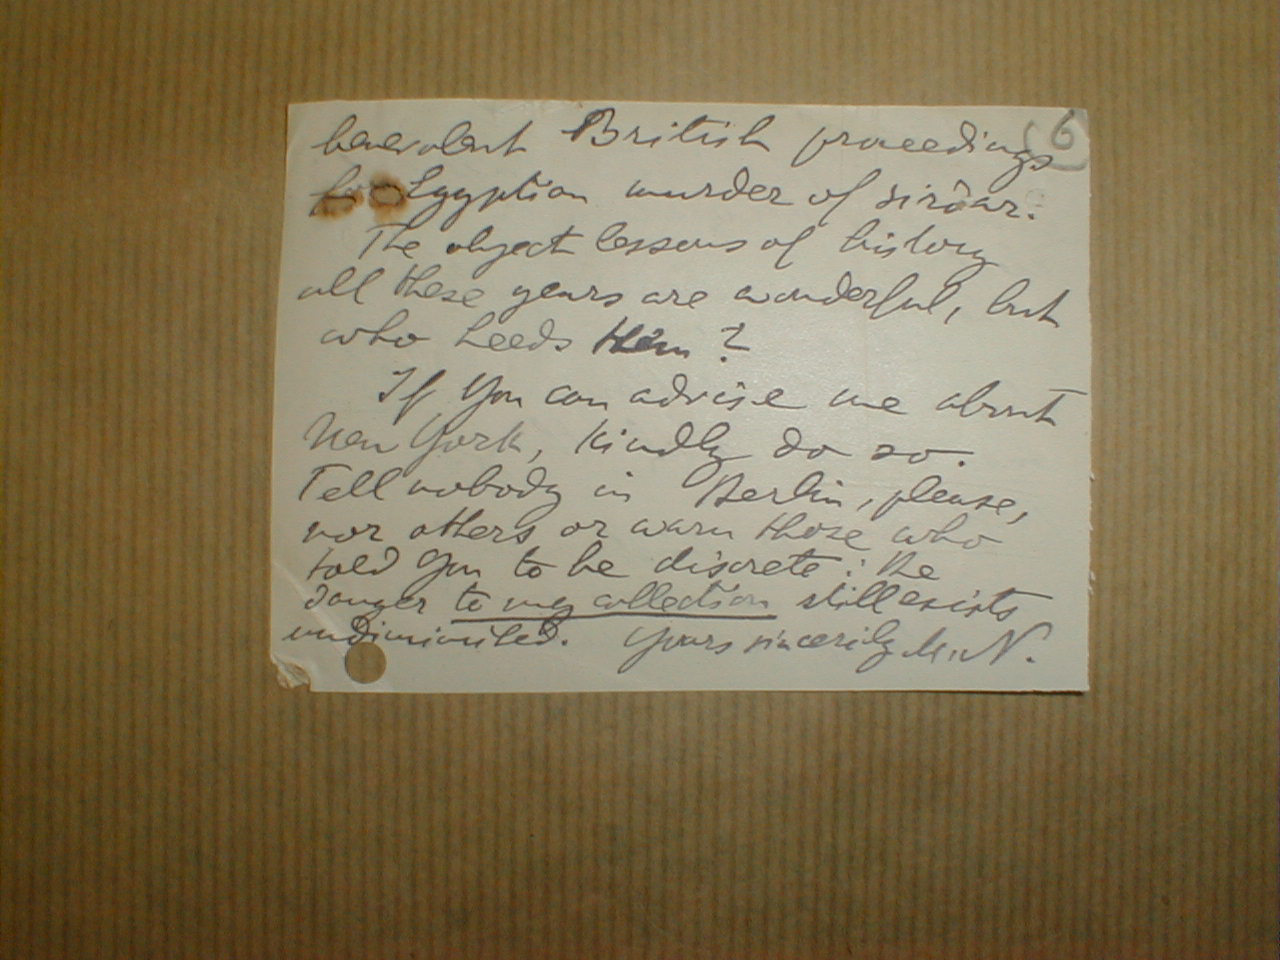 benevolent British proceedings (6
for Egyptian murder of sirdar.
The object lessons of history
all these years are wonderful, but
who heeds them?
If you can advise me about
New York, kindly do so.
Tell nobody in Berlin, please,
nor others or warn those who
told you to be discrete: the
danger to my collection still exists
undiminished. Yours sincerily M.N.